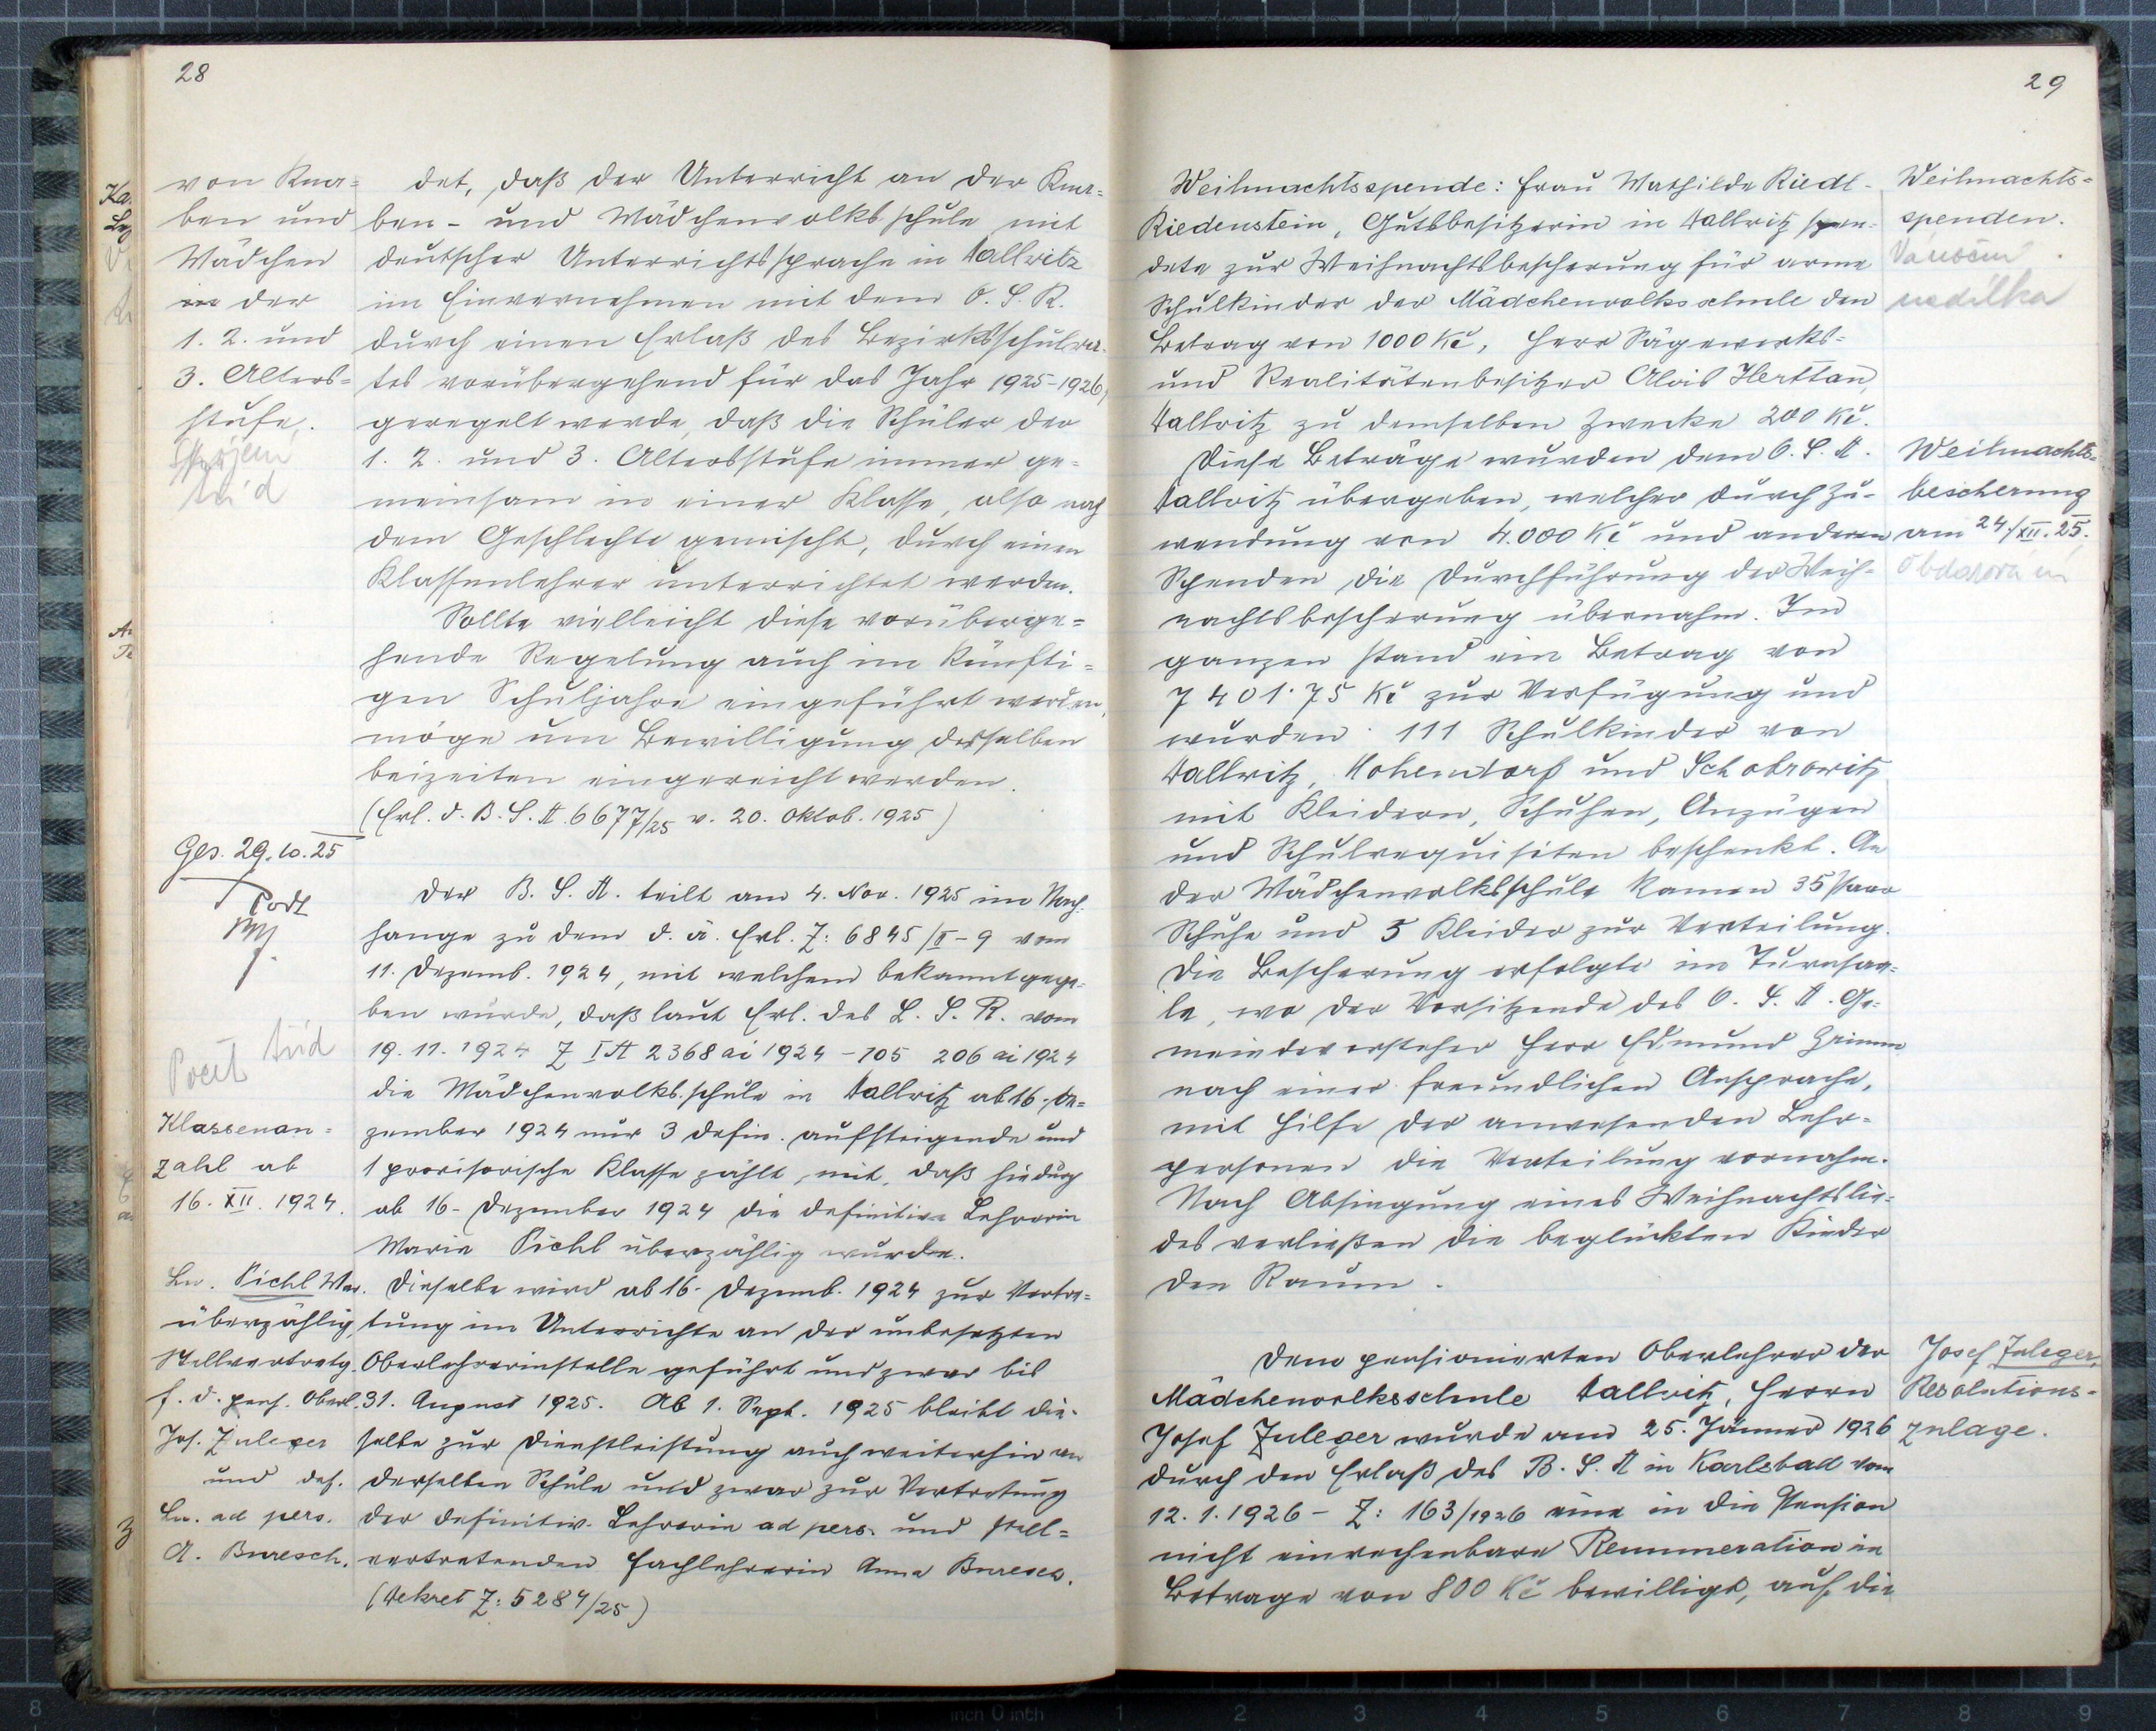 28
von Kna-
ben und
Mädchen
in der
1. 2. und
3. Alters-
stufe.
Spojení
tříd
det, daß der Unterricht an der Kna-
ben- und Mädchenvolksschule mit
deutscher Unterrichtssprache in Dallwitz
im Einvernehmen mit dem O. S. R.
durch einen Erlaß des Bezirksschulra-
tes vorübergehend für das Jahr 1925-1926,
geregelt werde, daß die Schüler der
1. 2. und 3. Altersstufe immer ge-
meinsam in einer Klasse, also nach
dem Geschlechte gemischt, durch einen
Klassenlehrer unterrichtet werden.
Sollte vielleicht diese vorüberge-
hende Regelung auch im künfti-
gen Schuljahre eingeführt werden,
möge um Bewilligung desselben
beizeiten eingereicht werden.
(Erl. d. B. S. A. 6677/25 v. 20. Oktob. 1925)
Ges. 29.10.25
Der B. S. A. teilt am 4. Nov. 1925 im Nach-
hange zu dem d. ä. Erl. Z: 6845/II-9 vom
11. Dezemb. 1924, mit welchem bekanntgege-
ben wurde, daß laut Erl. des L. S. R. vom
19.11.1924 Z I A 2368 ai 1924 - 105 206 ai 1924
die Mädchenvolksschule in Dallwitz ab 16. De-
zember 1924 nur 3 defin. aufsteigende und
1 provisorische Klasse zählt, mit, daß hiedurch
ab 16. Dezember 1924 die definitive Lehrerin
Marie Pichl überzählig wurde.
Počet tříd
Klassenan-
zahl ab
16. XII. 1924.
Ln. Pichl Mar.
überzählig
Stellvertretg.
f. d. pens. Oberl.
Jos. Zuleger
und def.
Ln. ad pers.
A. Buresch.
Dieselbe wird ab 16. Dezemb. 1924 zur Vertre-
tung im Unterrichte an der unbesetzten
Oberlehrerinstelle geführt und zwar bis
31. August 1925. Ab 1. Sept. 1925 bleibt die-
selbe zur Dienstleistung auch weiterhin an
derselben Schule und zwar zur Vertretung
der definitiv. Lehrerin ad pers. und stell-
vertretenden Fachlehrerin Anna Buresch.
(Dekret Z: 5284/25)
29
Weihnachtsspende: Frau Mathilde Riedl-
Riedenstein, Gutsbesitzerin in Dallwitz spen-
dete zur Weihnachtsbescherung für arme
Schulkinder der Mädchenvolksschule den
Betrag von 1000 Kč, Herr Sägewerks-
und Realitätenbesitzer Alois Herttan,
Dallwitz zu demselben Zwecke 200 Kč.
Diese Beträge wurden dem O. S. A.
Dallwitz übergeben, welcher durch Zu-
wendung von 4.000 Kč und anderen
Spenden die Durchführung der Weih-
nachtsbescherung übernahm. Im
ganzen stand ein Betrag von
7401·75 Kč zur Verfügung und
wurden 111 Schulkinder von
Dallwitz, Hohendorf und Schobrowitz
mit Kleidern, Schuhen, Anzügen
und Schulrequisiten beschenkt. An
der Mädchenvolksschule kamen 35 Paar
Schuhe und 5 Kleider zur Verteilung.
Die Bescherung erfolgte im Turnsaa-
le, wo der Vorsitzende des O. S. A. Ge-
meindevorsteher Herr Edmund Grimm
nach einer freundlichen Ansprache,
mit Hilfe der anwesenden Lehr-
personen die Verteilung vornahm.
Nach Absingung eines Weihnachtslie-
des verließen die beglückten Kinder
den Raum.
Weihnachts-
spenden.
Vánoční
nadílka
Weihnachts-
bescherung
am 24./XII. 25.
Dem pensionierten Oberlehrer der
Mädchenvolksschule Dallwitz, Herrn
Josef Zuleger wurde am 25. Jänner 1926
durch den Erlaß des B. S. A in Karlsbad vom
12.1.1926 - Z: 163/1926 eine in die Pension
nicht einrechenbare Remuneration im
Betrage von 800 Kč bewilligt, auf die
Josef Zuleger,
Resolutions-
zulage.